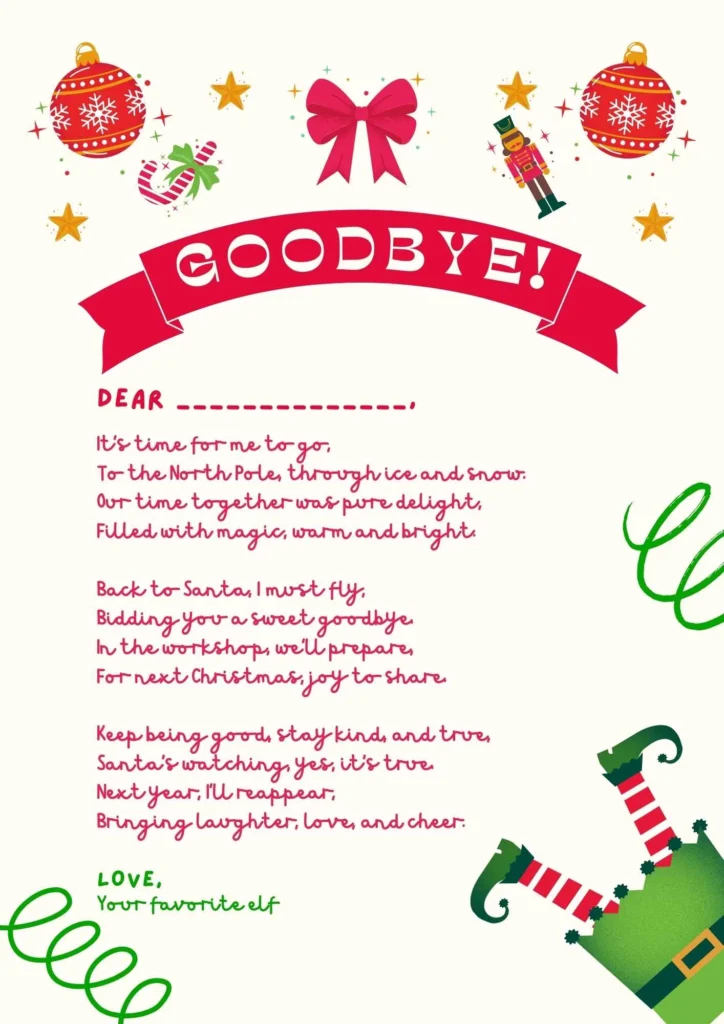 GOODBYE!
DEAR ______________,
It's time for me to go,
To the North Pole, through ice and snow.
Our time together was pure delight,
Filled with magic, warm and bright.
Back to Santa, I must fly,
Bidding you a sweet goodbye.
In the workshop, we'll prepare,
For next Christmas, joy to share.
Keep being good, stay kind, and true,
Santa's watching, yes, it's true.
Next year, I'll reappear,
Bringing laughter, love, and cheer.
LOVE,
Your favorite elf